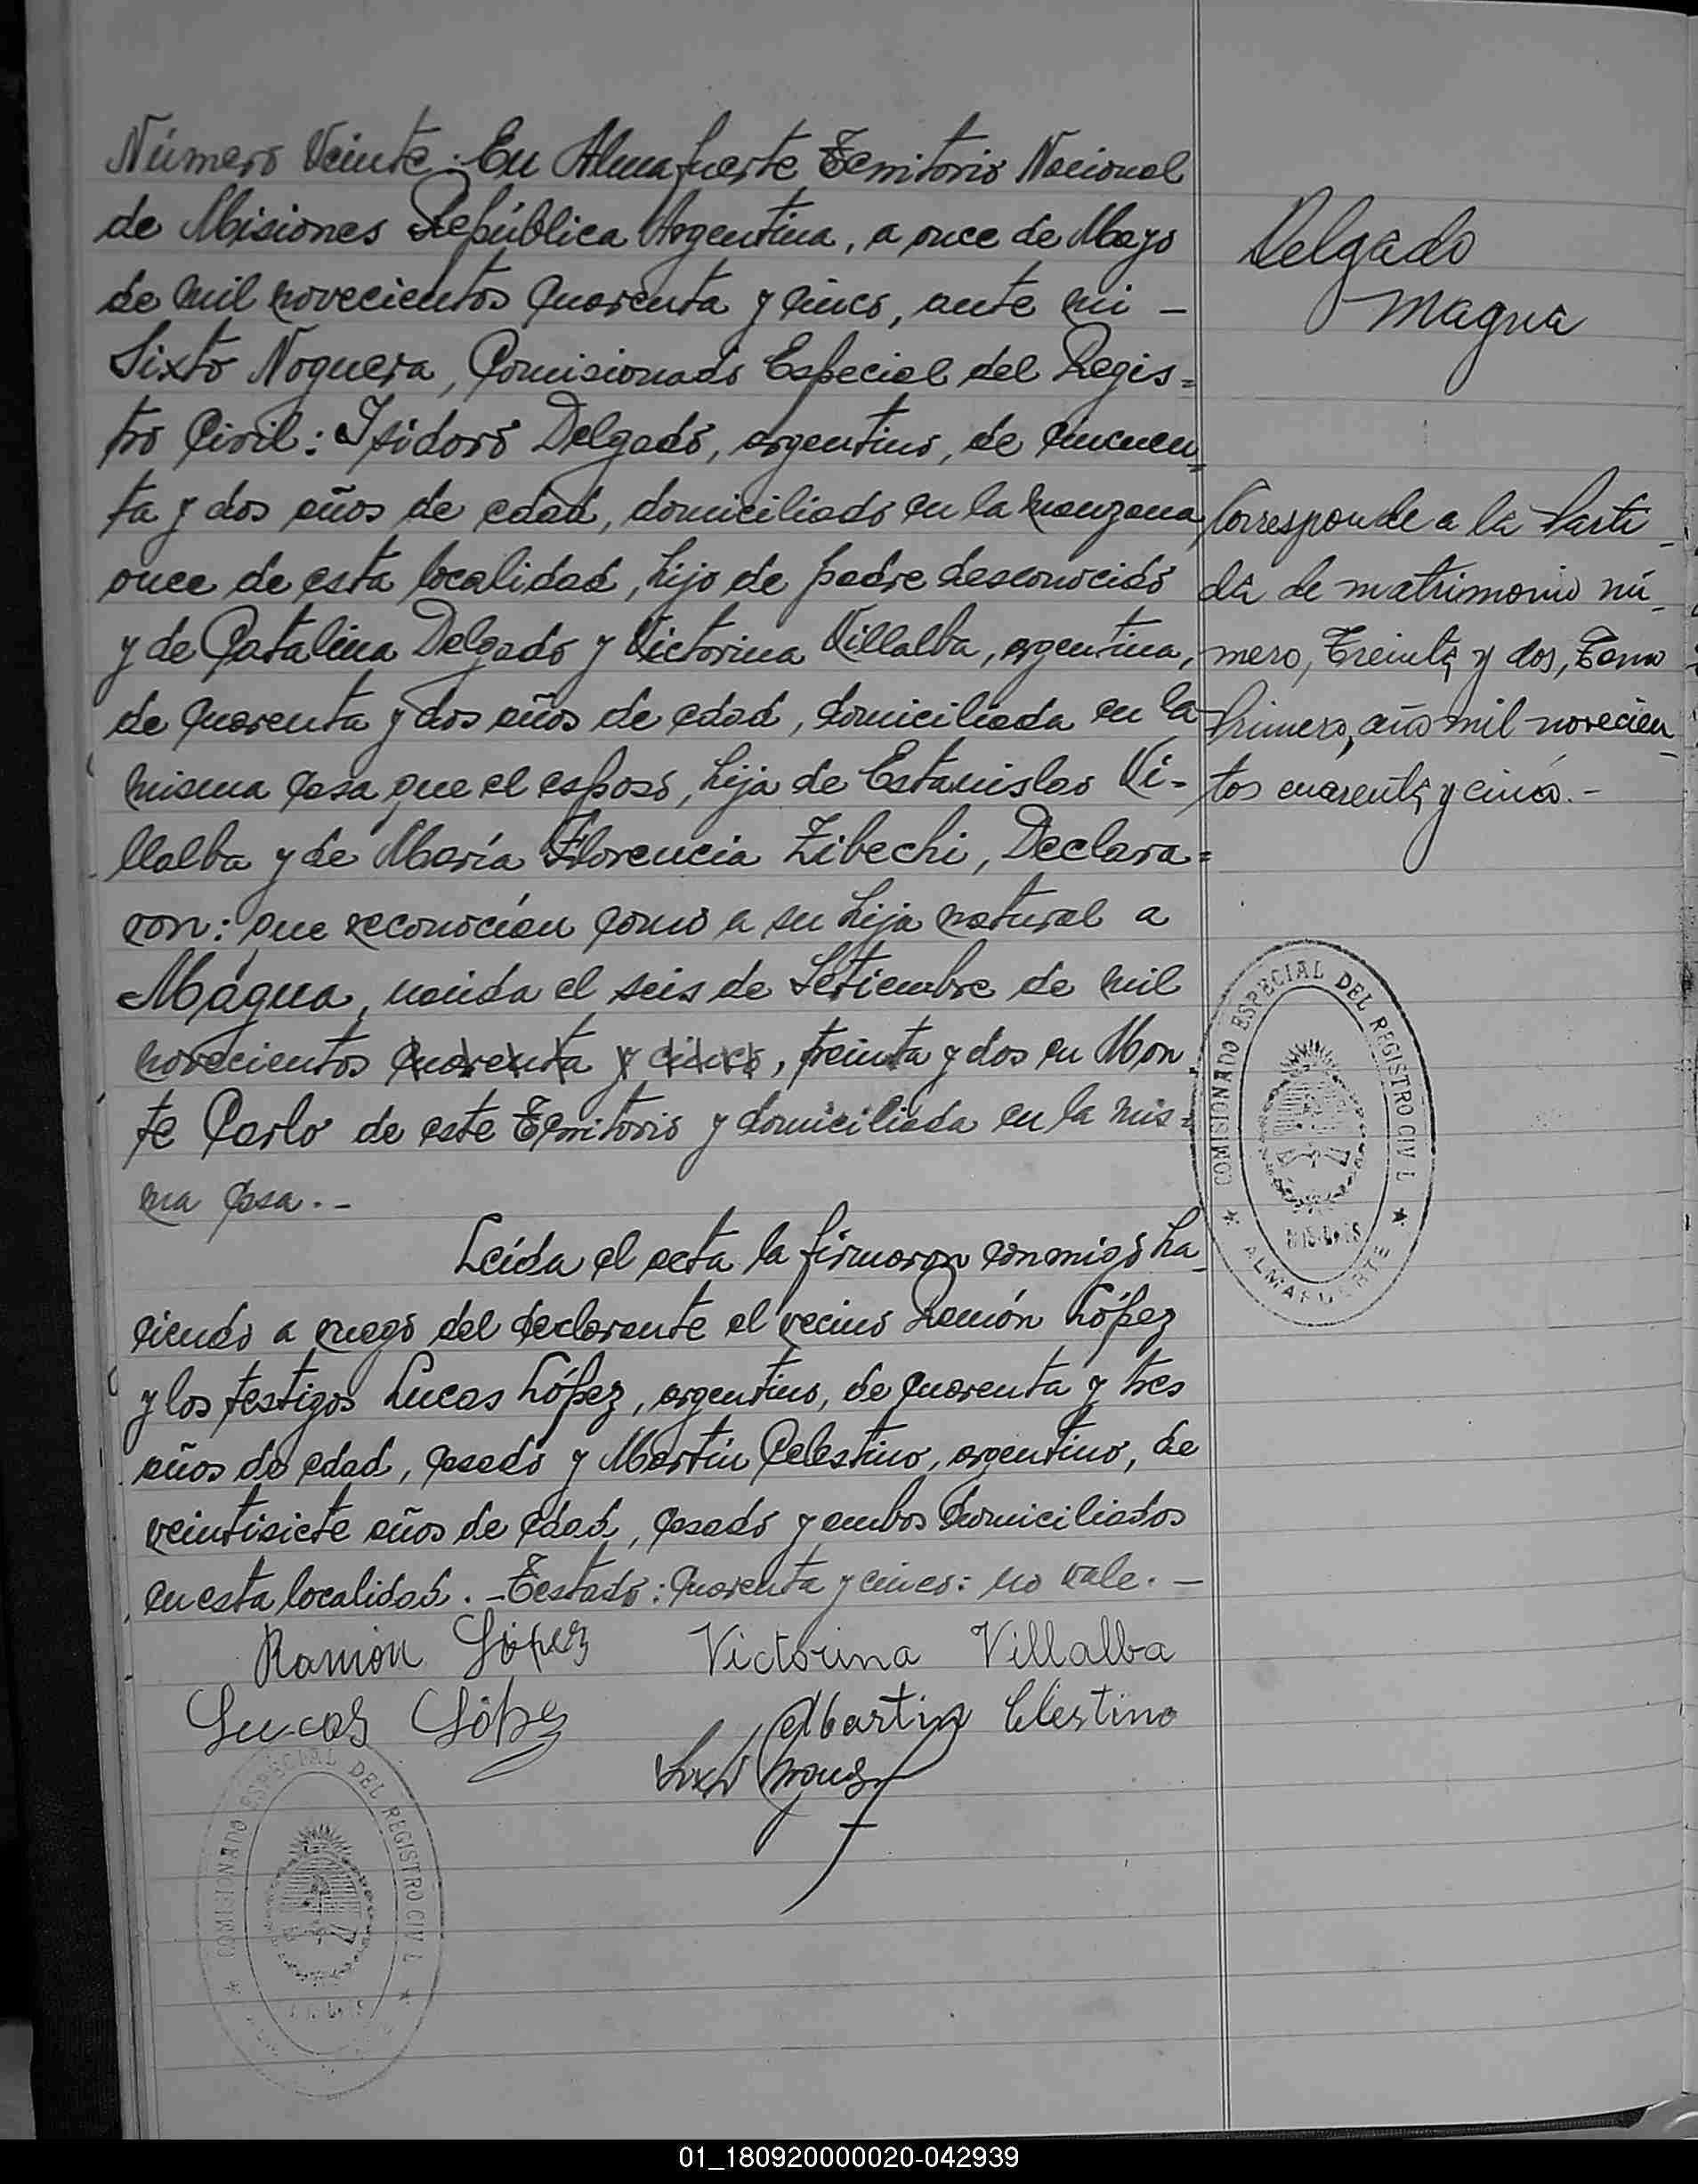 Número Veinte. En Almafuerte Territorio Nacional
de Misiones República Argentina, a once de Mayo
de mil novecientos cuarenta y cinco, ante mi -
Sixto Noguera, Comisionado Especial del Regis=
tro Civil: Isidoro Delgado, argentino, de cincuen=
ta y dos años de edad, domiciliado en la manzana
once de esta localidad, hijo de padre desconocido
y de Catalina Delgado y Victorina Villalba, argentina,
de cuarenta y dos años de edad, domiciliada en la
misma casa que el esposo, hija de Estanislao Vi-
llalba y de María Florencia Zibechi, Declara=
ron: que reconocían como a su hija natural a
Mágua, nacida el seis de Setiembre de mil
novecientos cuarenta y cinco, treinta y dos en Mon
te Carlo de este Territorio y domiciliada en la mis=
ma casa.-
Leída el acta la firmaron conmigo ha_
ciendo a ruego del declarante el vecino Ramón López
y los testigos Lucas López, argentino, de cuarenta y tres
años de edad, casado y Martín Celestino, argentino, de
veintisiete años de edad, casado y ambos domiciliados
en esta localidad. - Testado: cuarenta y cinco: no vale. -
Ramón López Victorina Villalba
Lucas López Martin Celestino
Delgado
Magua
Corresponde a la Parti_
da de matrimonio nú_
mero, Treinta y dos, Tomo
Primero, año mil novecien_
tos cuarenta y cinco.-
COMISIONADO ESPECIAL DEL REGISTRO CIVIL
MISIONES
★ ALMAFUERTE ★
COMISIONADO ESPECIAL DEL REGISTRO CIVIL
01_180920000020-042939